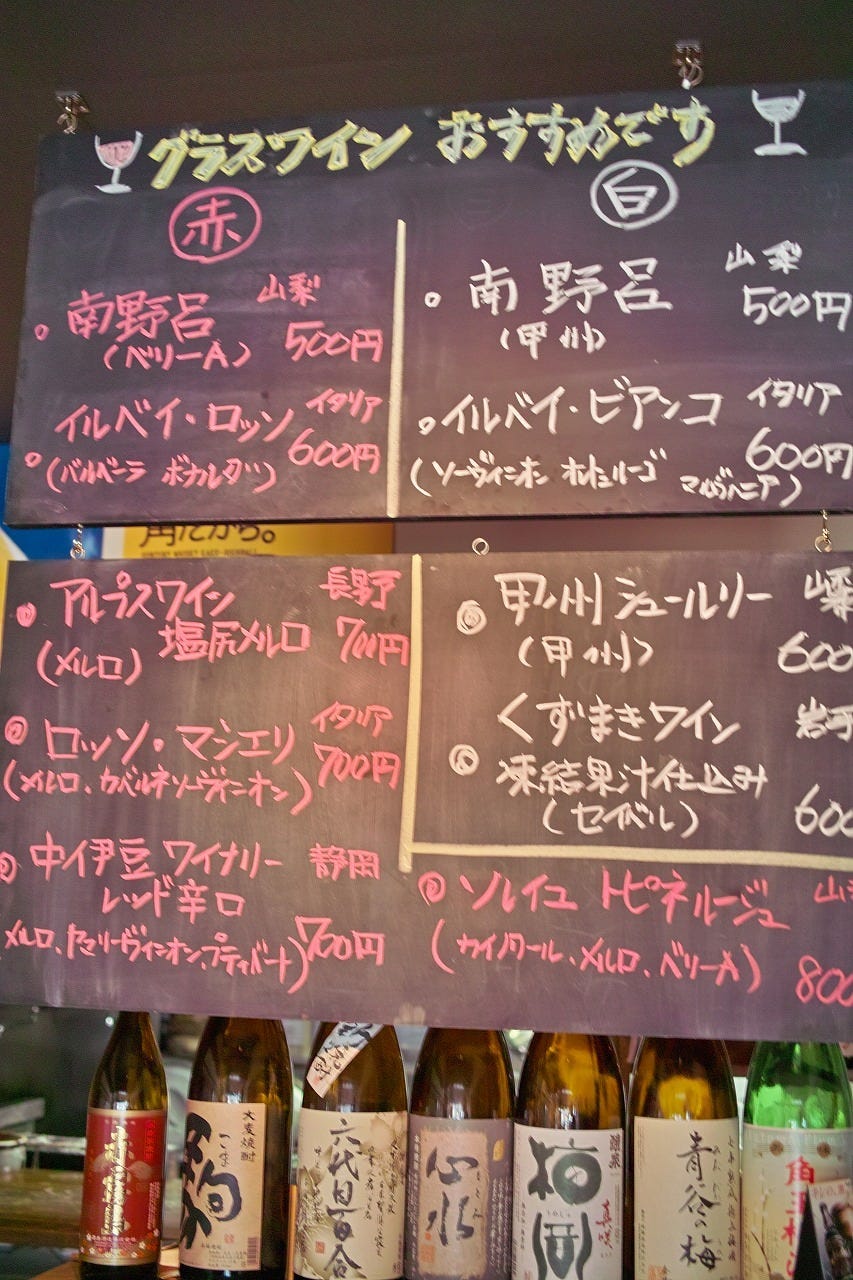 グラスワイン おすすめです
赤
南野呂 山梨
(ベリーA) 500円
イルベイ・ロッソ イタリア
600円
(バルベーラ ボカルダ)
白
南野呂 山梨
(甲州) 500円
イルベイ・ビアンコ イタリア
600円
(ソーヴィニオン オルトルーゴ マルヴァニア)
角だから。
アルプスワイン 長野
塩尻メルロ 700円
(メルロ)
ロッソ・マシエリ イタリア
700円
(メルロ、カベルネソーヴィニオン)
中伊豆ワイナリー 静岡
レッド辛口
700円
甲州シュールリー 山梨
(甲州) 600
くずまきワイン 岩手
凍結果汁仕込み
(セイベル) 600
ソレイユ トピネルージュ 山梨
(カイノワール、メルロ、ベリーA) 800
大麦焼酎
こま
駒
六代目百合
心水
梅園
青谷の梅
角玉梅